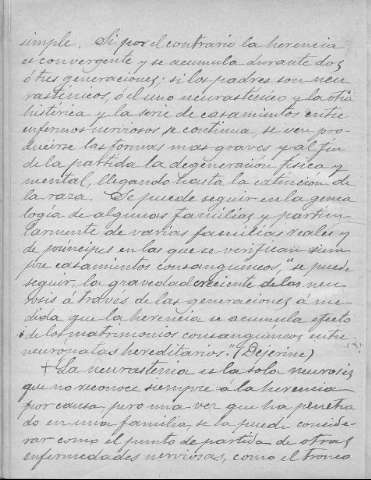 simple. Si por el contrario la herencia
es convergente y se acumula durante dos
ó tres generaciones; si los padres son neu
rasténicos, ó el uno neurasténico y la otra
histérica y la serie de casamientos entre
enfermos nerviosos se continua, se ven pro-
ducirse las formas mas graves y al fin
de la partida la degeneración física y
mental, llegando hasta la extinción de
la raza. Se puede seguir en la genea
logia de algunas familias y particu
larmente de varias familias reales y
de principes en las que se verifican siem
pre casamientos consanguineos, "se puede
seguir la gravedad creciente de las neu
rosis á traves de las generaciones á me
dida que la herencia se acumula efecto
de los matrimonios consanguineos entre
neurópatas hereditarios." (Dejerine)
+ La neurastenia es la sola neurosis
que no reconoce siempre á la herencia
por causa, pero una vez que ha penetra
do en una familia, se la puede conside-
rar como el punto de partida de otras
enfermedades nerviosas, como el tronco